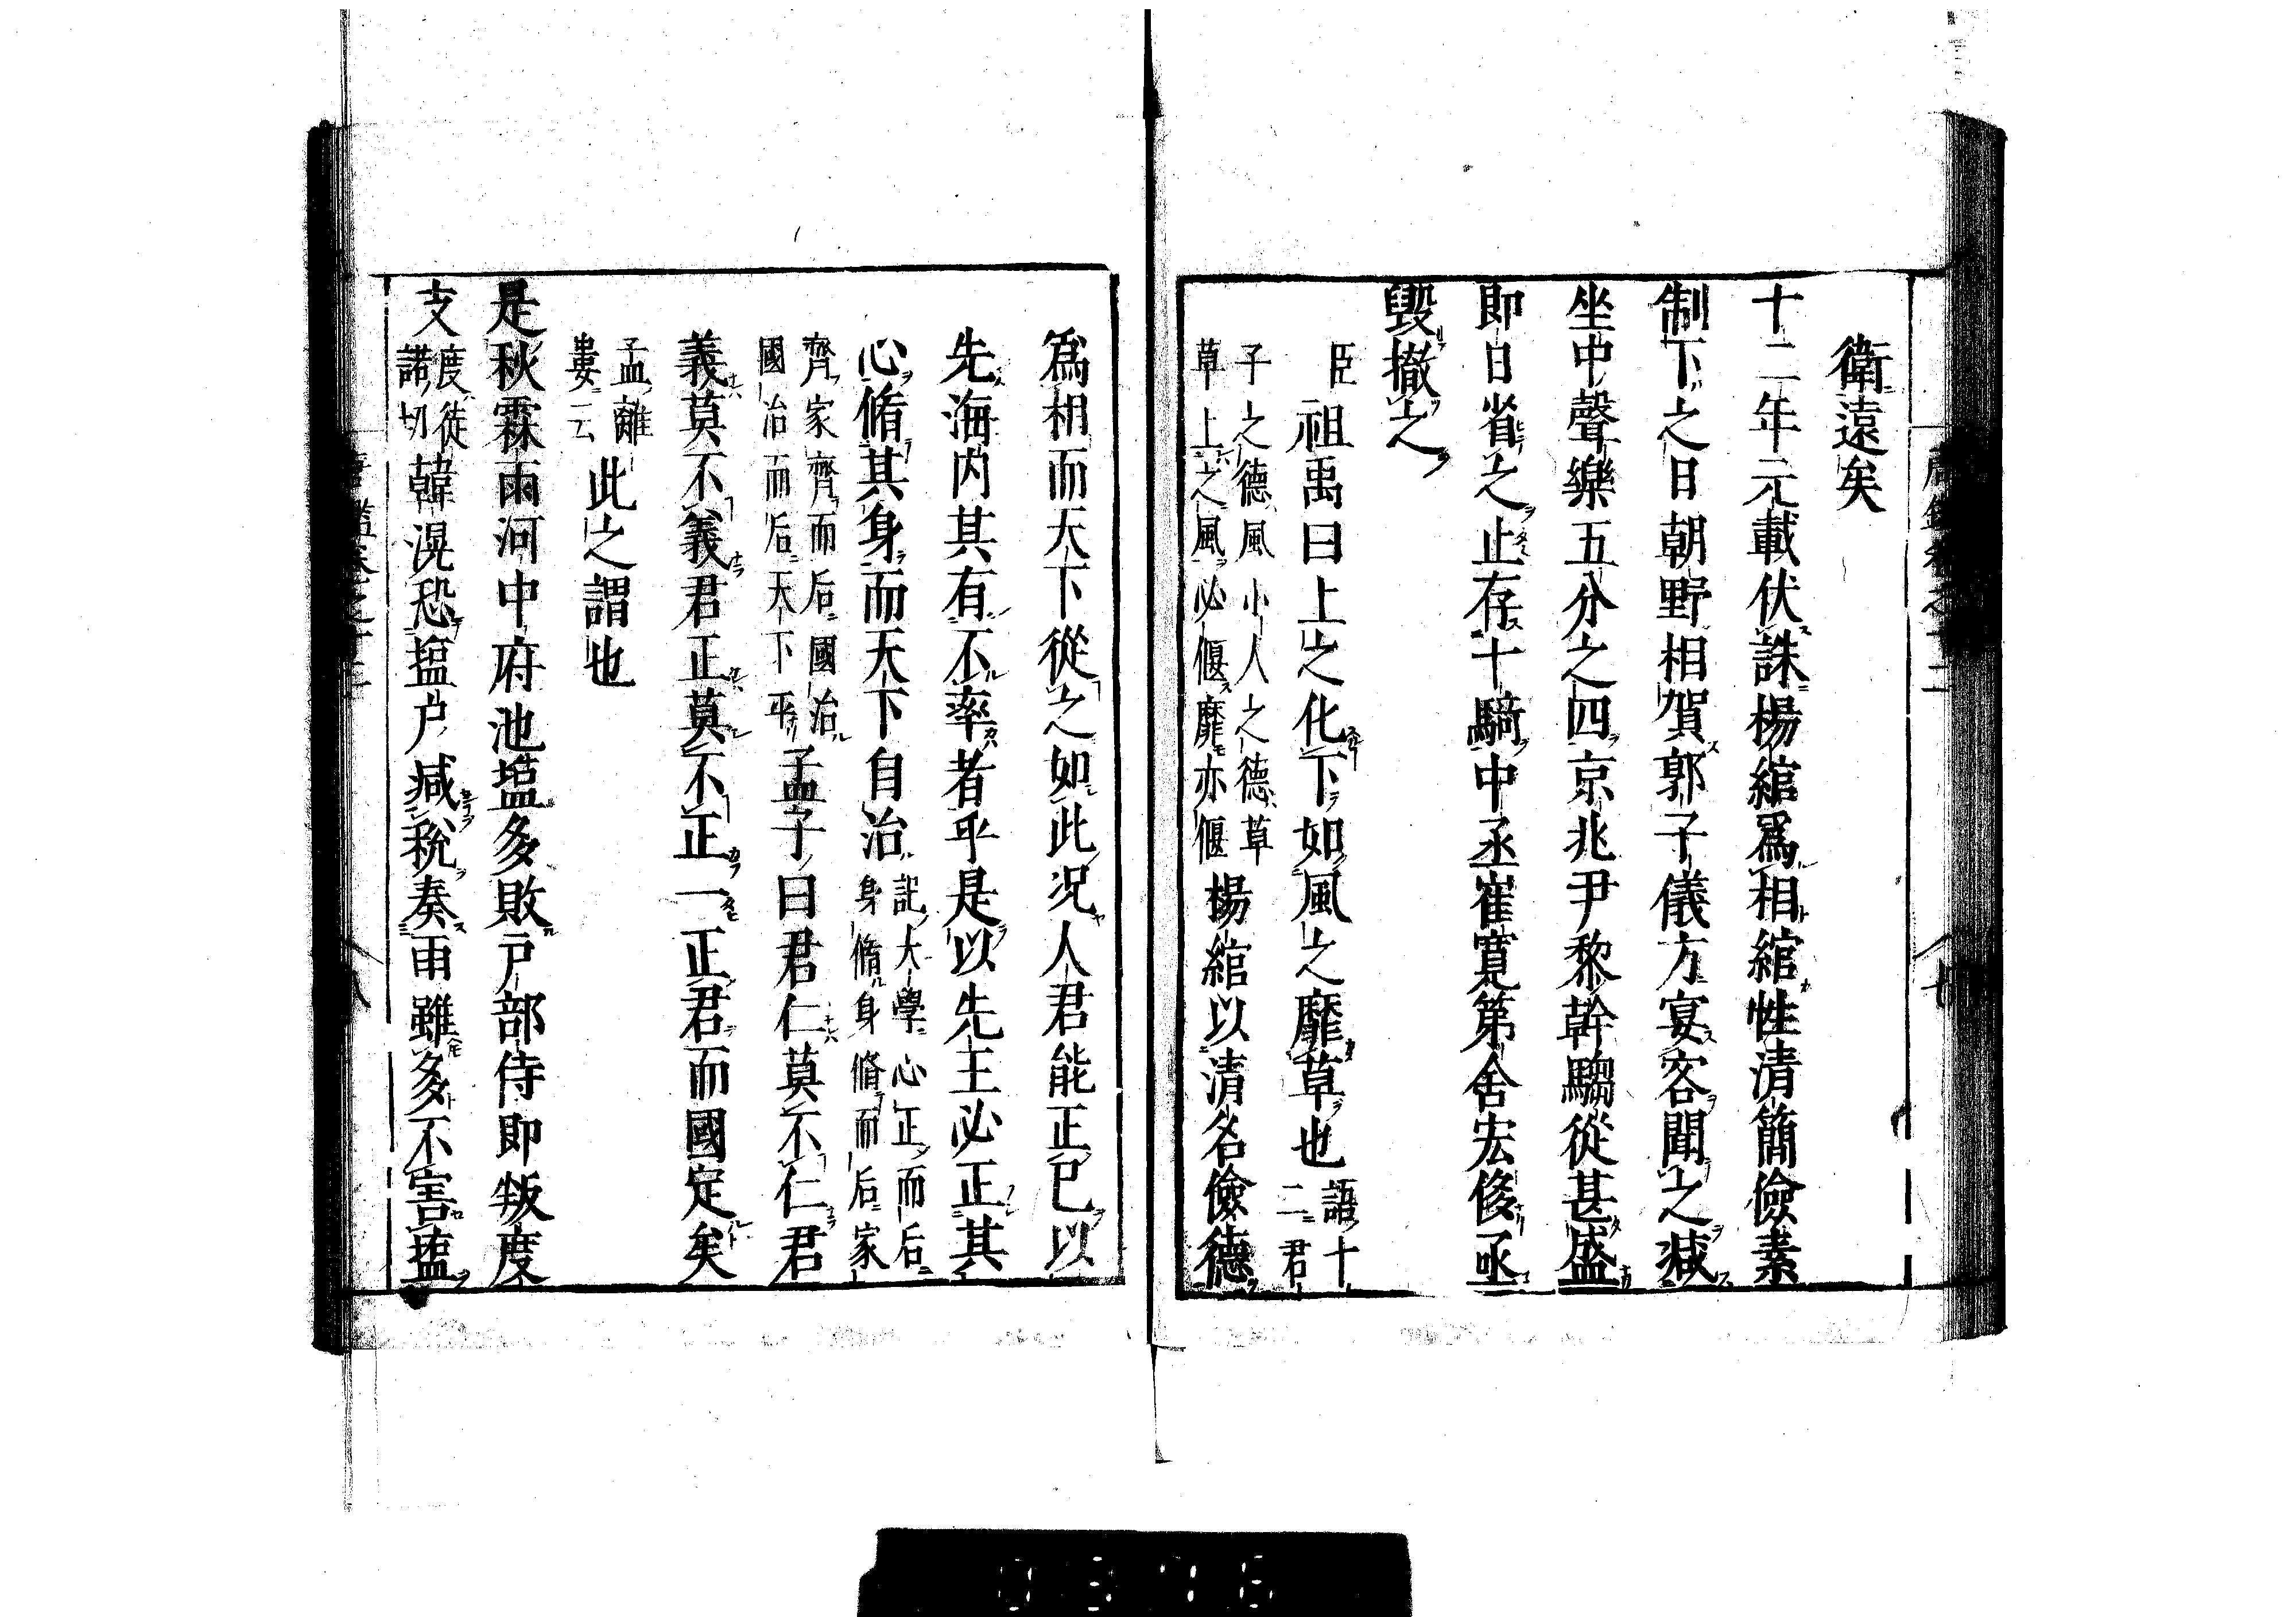 衛遠矣
十二年元載伏誅楊綰爲相綰性清簡儉素
制下之日朝野相賀郭子儀方宴客聞之減
坐中聲樂五分之四京兆尹黎幹騶從甚盛
即日省之止存十騎中丞崔寬第舍宏侈亟
毀撤之
臣祖禹曰上之化下如風之靡草也語十二君
子之德風小人之德草
草上之風必偃靡亦偃
楊綰以清名儉德
爲相而天下從之如此况人君能正已以
先海内其有不率者乎是以先王必正其
心脩其身而天下自治記大學心正而后
身脩身脩而后家
齊家齊而后國治
國治而后天下平
孟子曰君仁莫不仁君
義莫不義君正莫不正一正君而國定矣
孟離
婁云
此之謂也
是秋霖雨河中府池塩多敗戸部侍郎叛度
支度徒
諾切
韓滉恐塩户减稅奏雨雖多不害塩